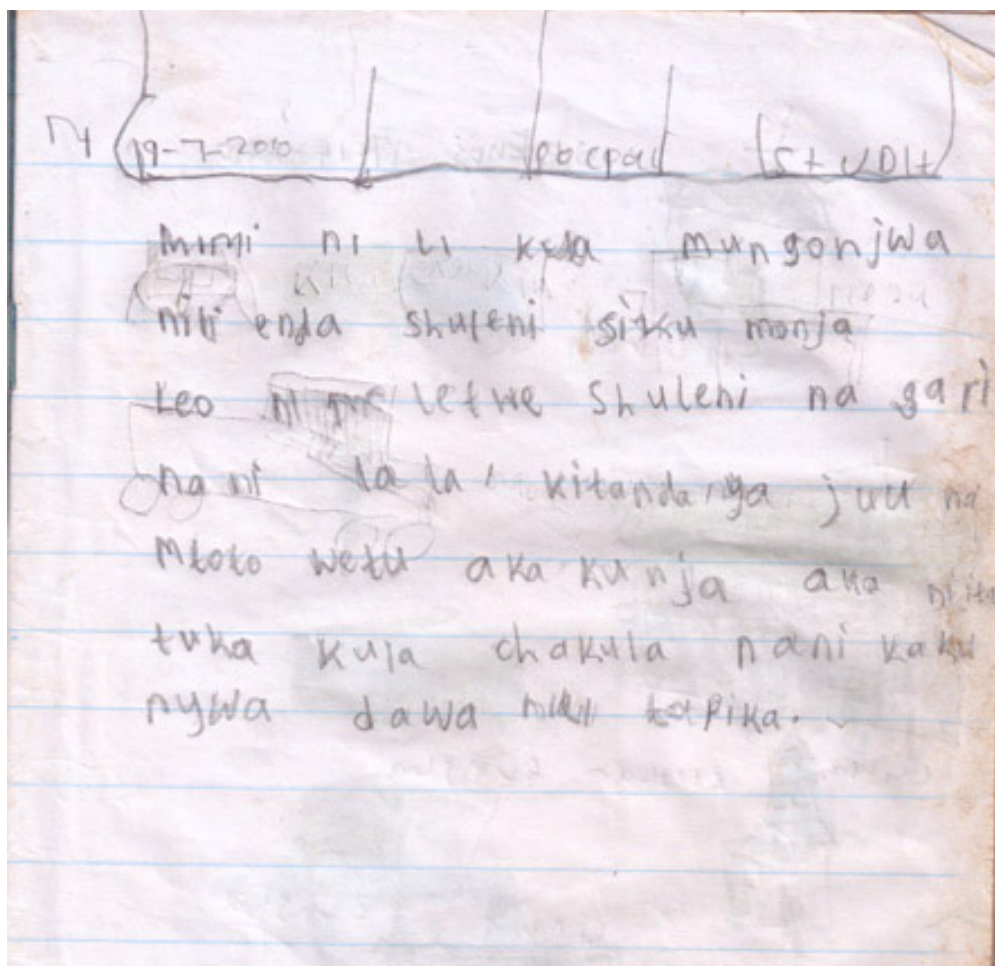 19-7-2010
Mimi ni li kula mungonjwa
nili enda shuleni siku monja
Leo letwe shuleni na gari
na ni la la kitanda ya juu na
Mtoto wetu aka kunja aka
tuka kula chakula nani kaku
nywa dawa tapika.